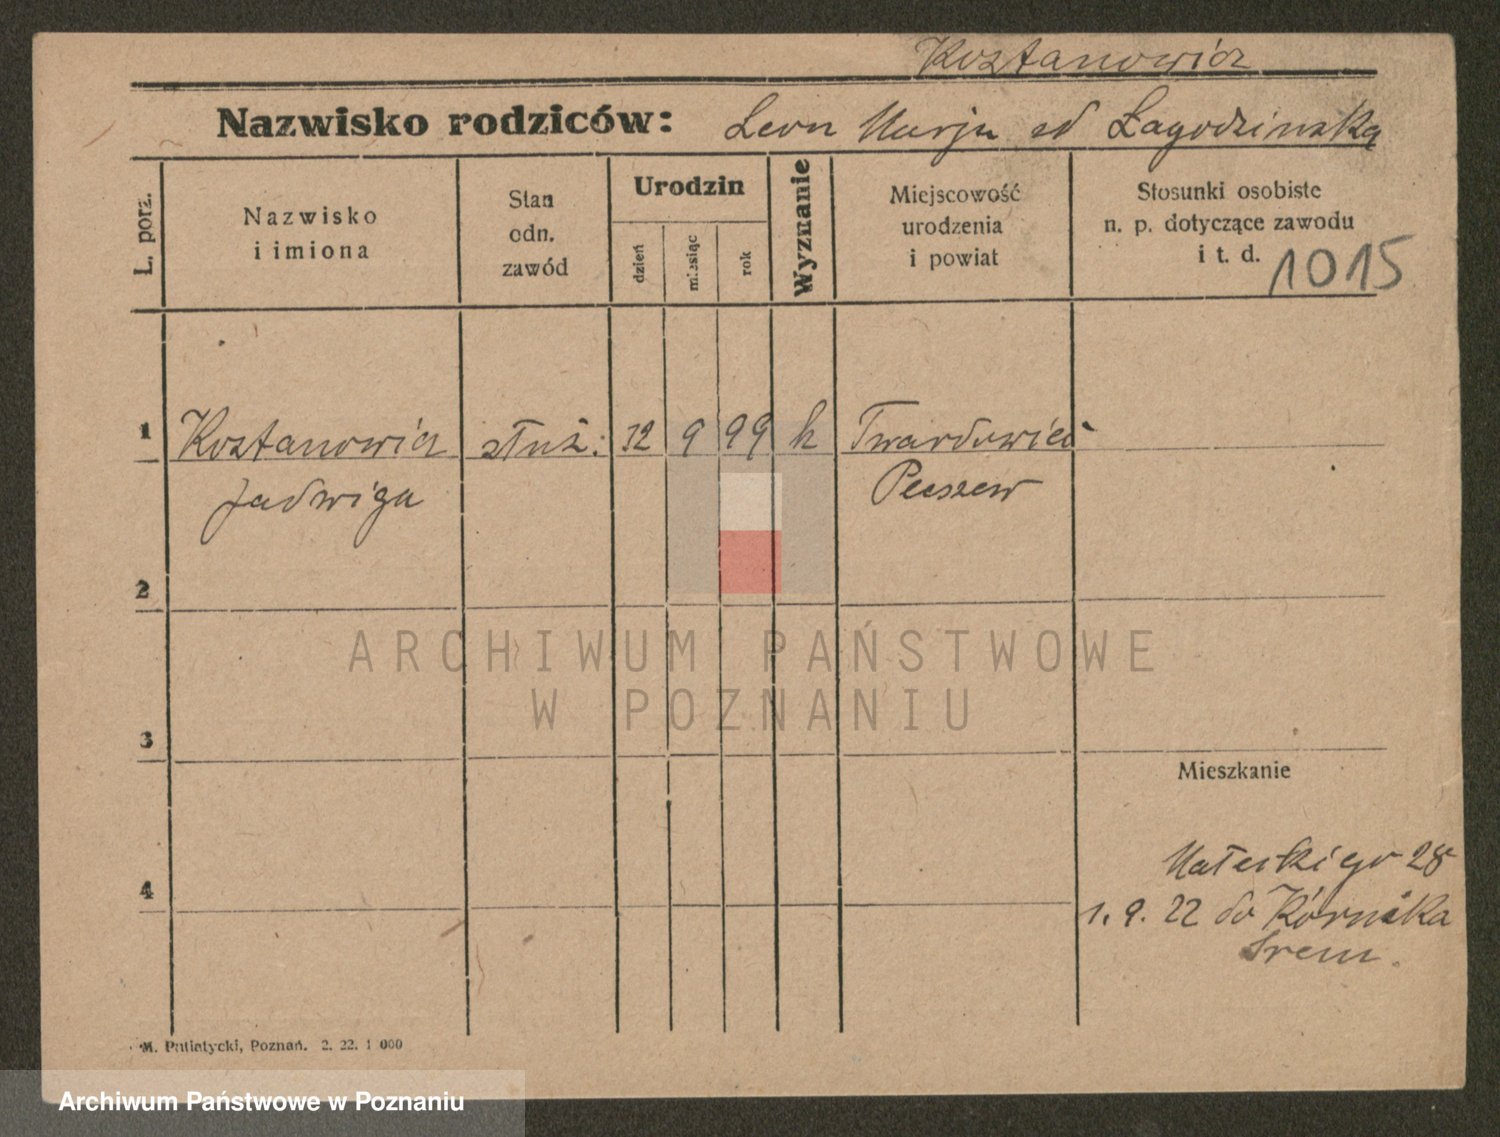 Kostanowicz
Nazwisko rodziców: Leon Marja zd Łagodzinska
L. porz.
Nazwisko
i imiona
Stan
odn.
zawód
Urodzin
dzień
miesiąc
rok
Wyznanie
Miejscowość
urodzenia
i powiat
Stosunki osobiste
n. p. dotyczące zawodu
i t. d.
1015
1 Kostanowicz służ. 12 9 99 k
Jadwiga
2
3
4
Mieszkanie
28
1. 9. 22 do Kórnika
Śrem.
ARCHIWUM PAŃSTWOWE
W POZNANIU
M. Putiatycki, Poznań. 2. 22. 1 000
Archiwum Państwowe w Poznaniu